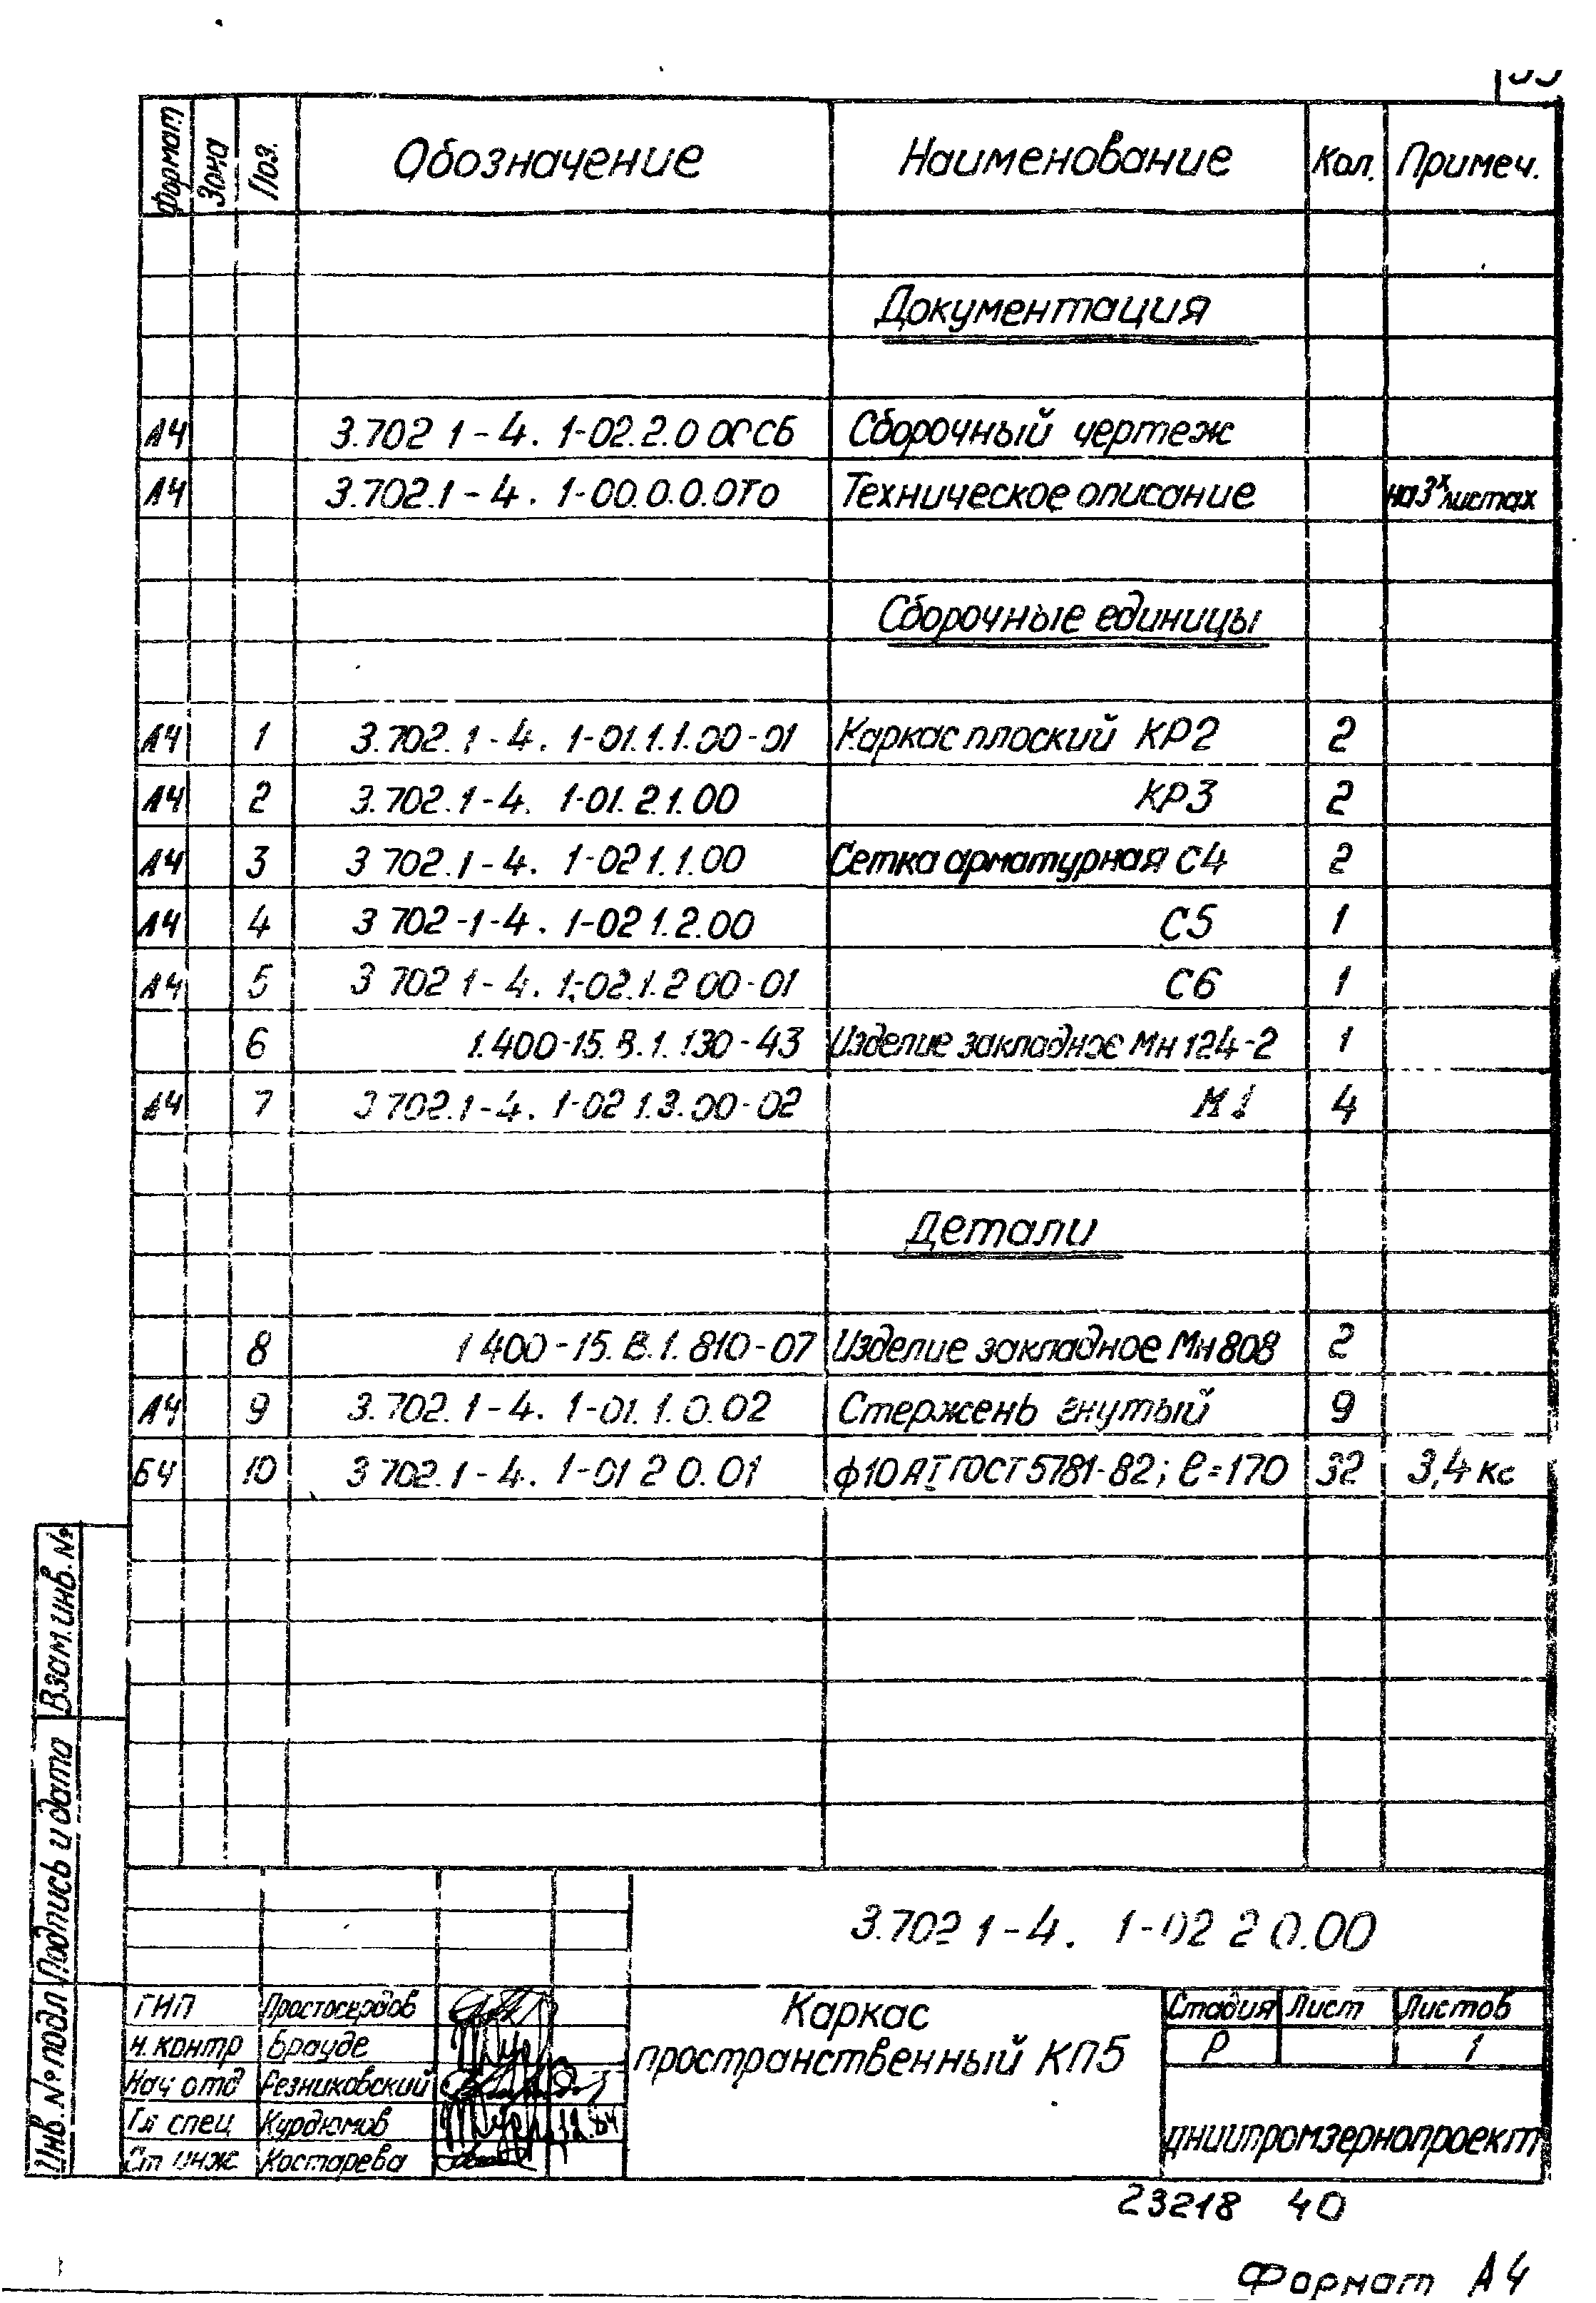 Формат Зона Поз. Обозначение Наименование Кол. Примеч.
Документация
А4 3.702 1-4. 1-02.2.0 00СБ Сборочный чертеж
А4 3.702.1-4. 1-00.0.0.0ТО Техническое описание на 3х листах
Сборочные единицы
А4 1 3.702.1-4. 1-01.1.1.00-01 Каркас плоский КР2 2
А4 2 3.702.1-4. 1-01.2.1.00 КР3 2
А4 3 3 702.1-4. 1-02 1.1.00 Сетка арматурная С4 2
А4 4 3 702-1-4. 1-02 1.2.00 С5 1
А4 5 3 702 1-4. 1-02.1.2 00-01 С6 1
6 1.400-15.В.1.130-43 Изделие закладное Мн 124-2 1
А4 7 3 702.1-4. 1-02 1.3.00-02 М1 4
Детали
8 1 400-15.В.1.810-07 Изделие закладное Мн 808 2
А4 9 3.702.1-4. 1-01.1.0.02 Стержень гнутый 9
БЧ 10 3 702.1-4. 1-01 2 0.01 ф10 АI ГОСТ 5781-82; ℓ=170 32 3,4 кг
Взам. инв. №
Подпись и дата
Инв. № подл
3.702 1-4. 1-02 2 0.00
ГИП Простосердов
Н. контр Брауде
Нач отд Резниковский
Гл спец Курдюмов 12.84
Ст инж Костарева
Каркас
пространственный КП5
Стадия Лист Листов
Р 1
ЦНИИпромзернопроект
23218 40
Формат А4